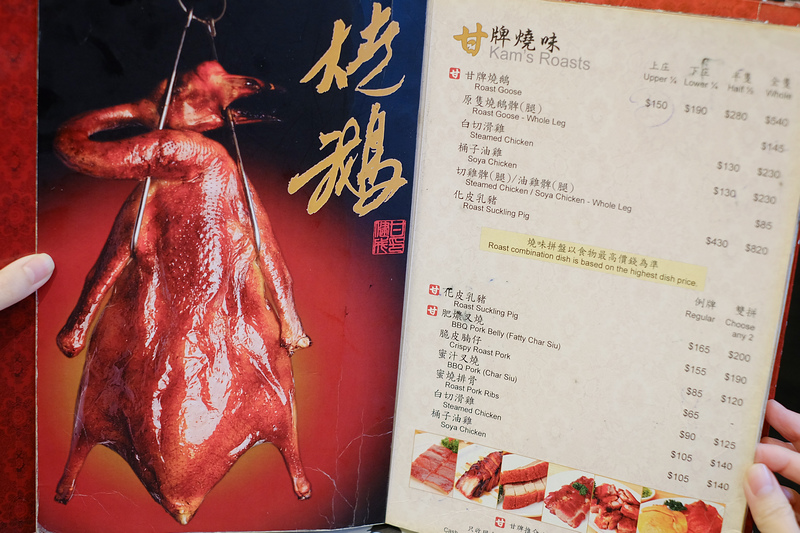 烤鵝
甘牌燒味
Kam's Roasts
上庄 下庄 半隻 全隻
Upper ¼ Lower ¼ Half ½ Whole
甘牌燒鵝
Roast Goose
$150 $190 $280 $540
原隻燒鵝髀(腿)
Roast Goose - Whole Leg
$145
白切滑雞
Steamed Chicken
$130 $230
桶子油雞
Soya Chicken
$130 $230
切雞髀(腿)/油雞髀(腿)
Steamed Chicken / Soya Chicken - Whole Leg
$85
化皮乳豬
Roast Suckling Pig
$430 $820
燒味拼盤以食物最高價錢為準
Roast combination dish is based on the highest dish price.
例牌 雙拼
Regular Choose any 2
化皮乳豬
Roast Suckling Pig
$165 $200
肥燶叉燒
BBQ Pork Belly (Fatty Char Siu)
$155 $190
脆皮腩仔
Crispy Roast Pork
$85 $120
蜜汁叉燒
BBQ Pork (Char Siu)
$65 -
蜜燒排骨
Roast Pork Ribs
$90 $125
白切滑雞
Steamed Chicken
$105 $140
桶子油雞
Soya Chicken
$105 $140
甘牌推介